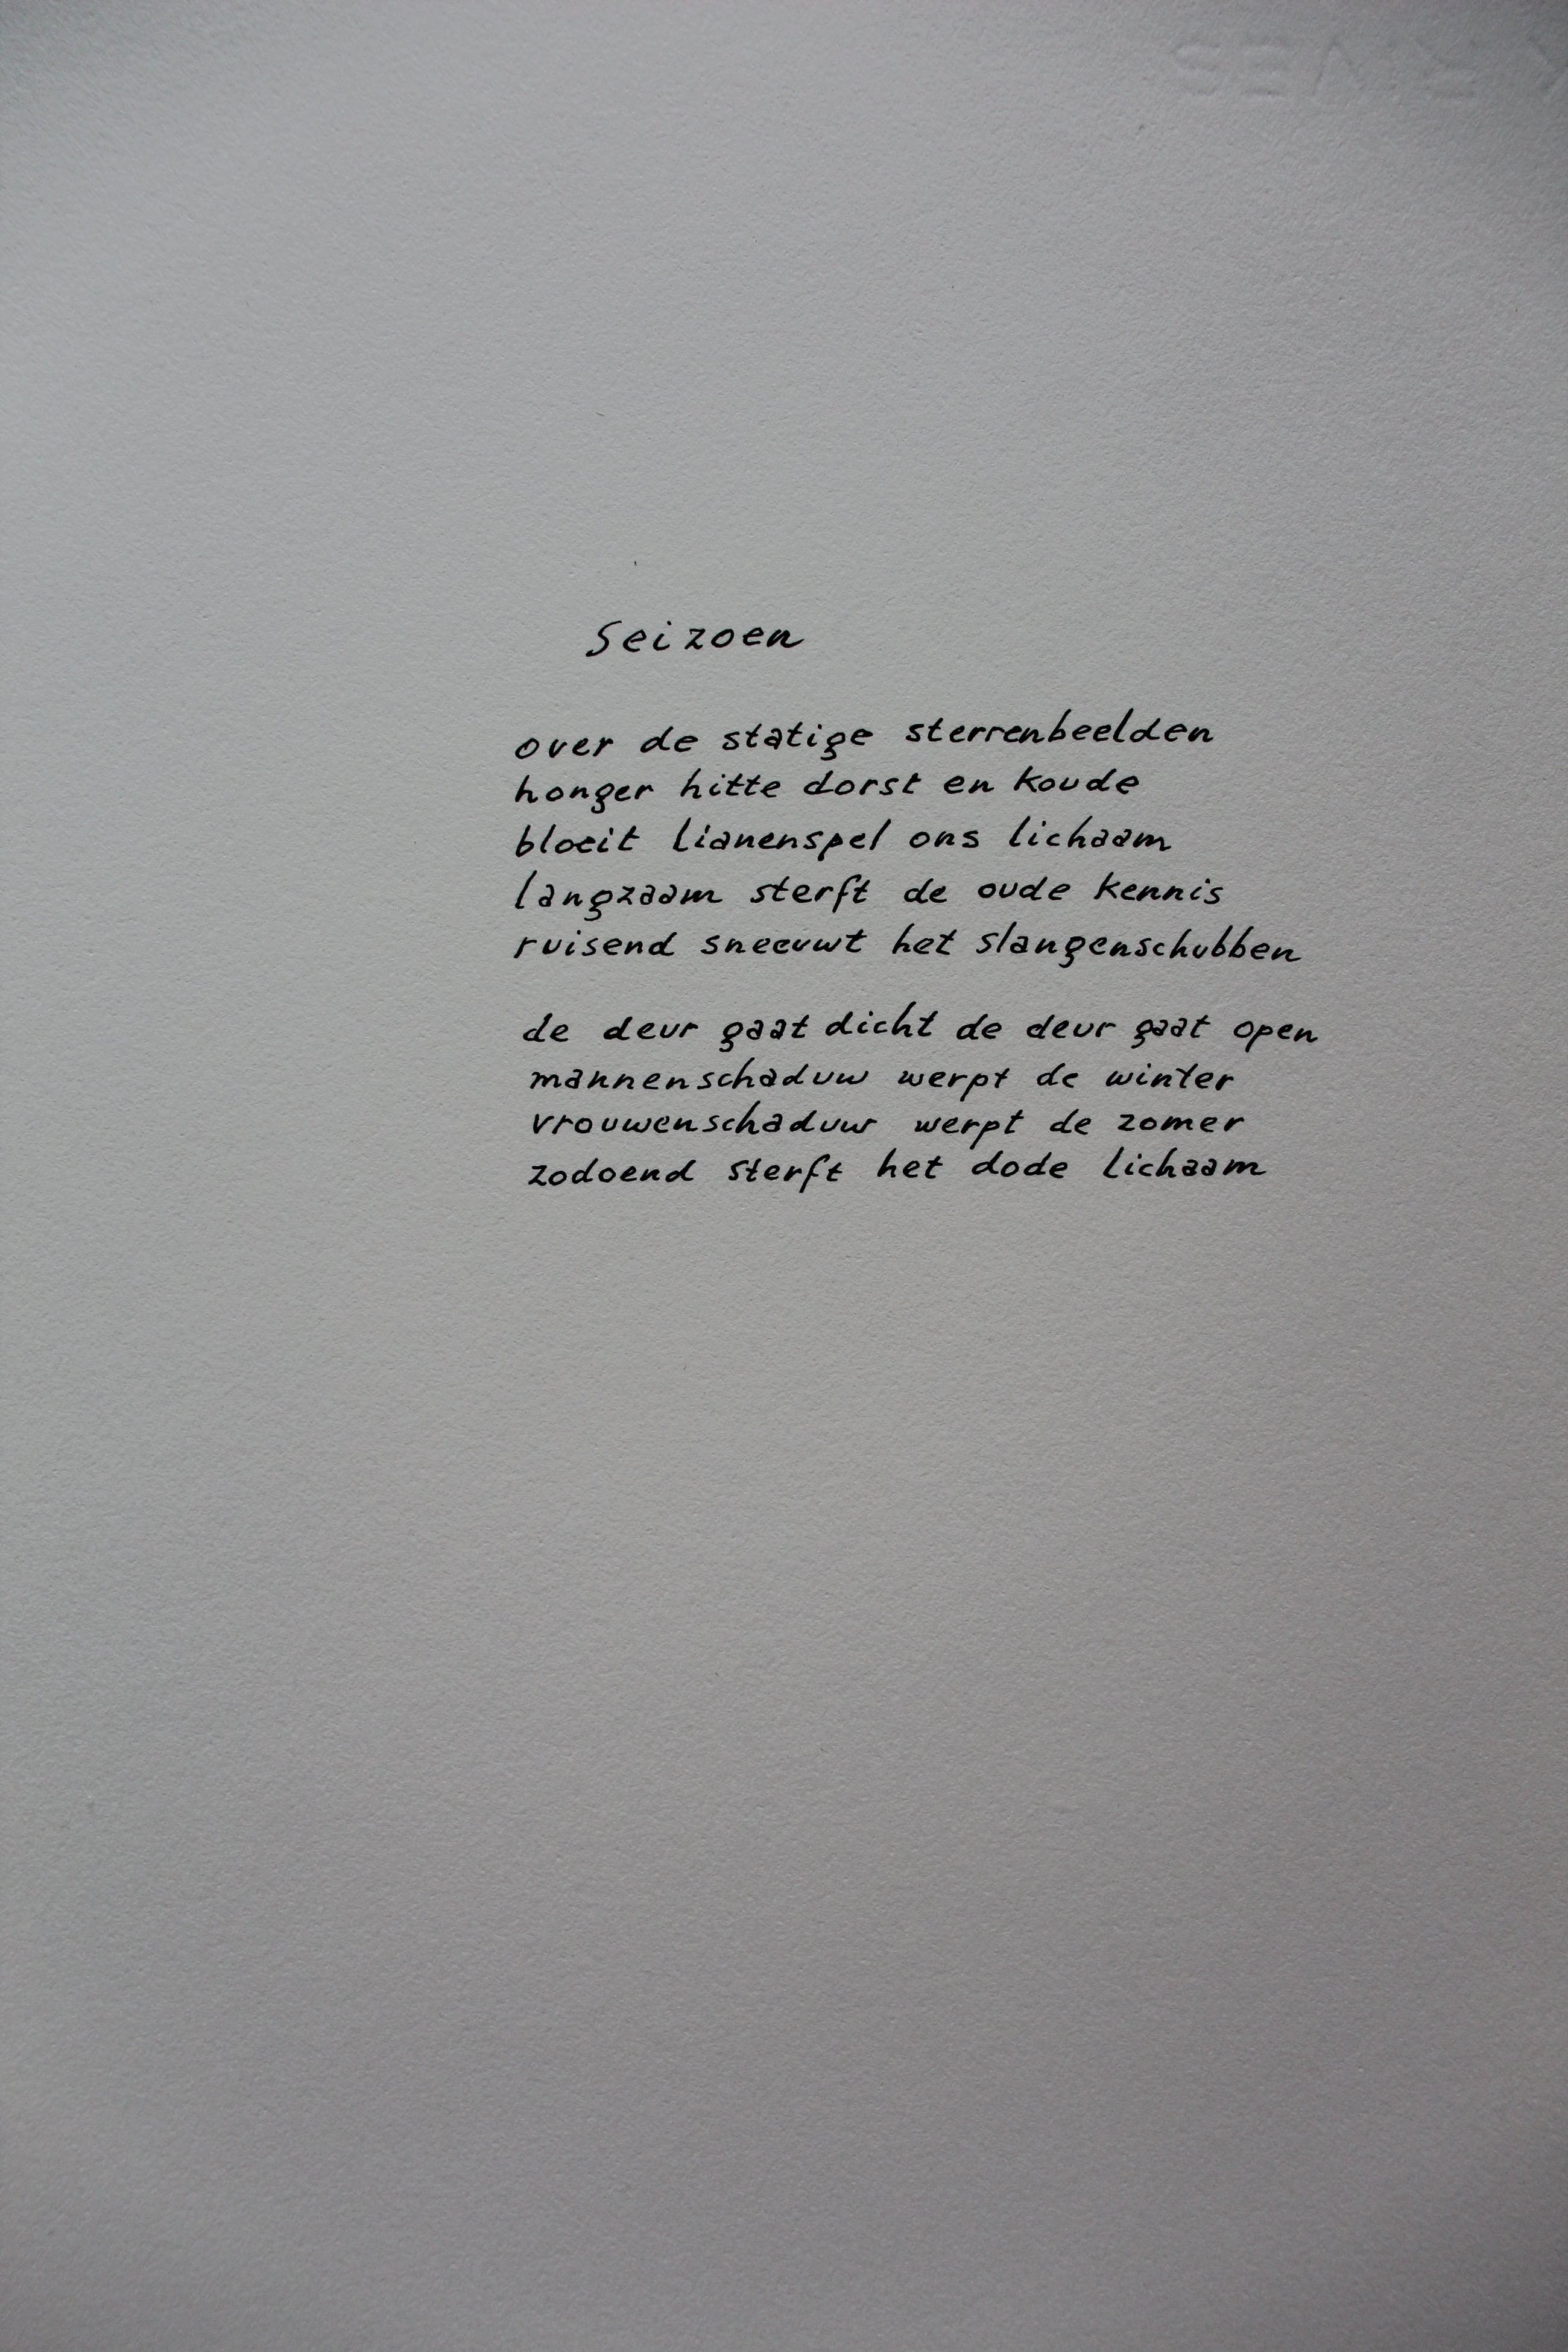 Seizoen
over de statige sterrenbeelden
honger hitte dorst en koude
bloeit lianenspel ons lichaam
langzaam sterft de oude kennis
ruisend sneeuwt het slangenschubben
de deur gaat dicht de deur gaat open
mannenschaduw werpt de winter
vrouwenschaduw werpt de zomer
zodoend sterft het dode lichaam